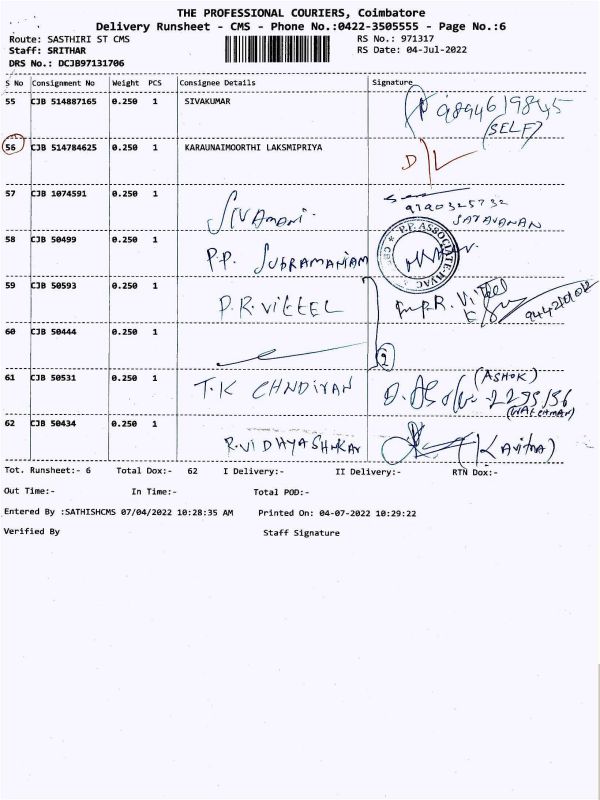 THE PROFESSIONAL COURIERS, Coimbatore
Delivery Runsheet - CMS - Phone No.:0422-3505555 - Page No.:6
Route: SASTHIRI ST CMS RS No.: 971317
Staff: SRITHAR RS Date: 04-Jul-2022
DRS No.: DCJB97131706
S No Consignment No Weight PCS Consignee Details Signature
55 CJB 514887165 0.250 1 SIVAKUMAR 9894619845
(SELF)
56 CJB 514784625 0.250 1 KARAUNAIMOORTHI LAKSMIPRIYA D/L
57 CJB 1074591 0.250 1 SIVAmani.
SARAVANAN
58 CJB 50499 0.250 1 P.P. SUBRAMANIAM P.P. ASSOCIATE-HVAC
59 CJB 50593 0.250 1 P.R. VITTEL P.R. Vittel
60 CJB 50444 0.250 1 2
61 CJB 50531 0.250 1 T.K CHNDIYAN (ASHOK)
(WATCHMAN)
62 CJB 50434 0.250 1 R.VIDHYASHNKAR (KAVITHA)
Tot. Runsheet:- 6 Total Dox:- 62 I Delivery:- II Delivery:- RTN Dox:-
Out Time:- In Time:- Total POD:-
Entered By :SATHISHCMS 07/04/2022 10:28:35 AM Printed On: 04-07-2022 10:29:22
Verified By Staff Signature